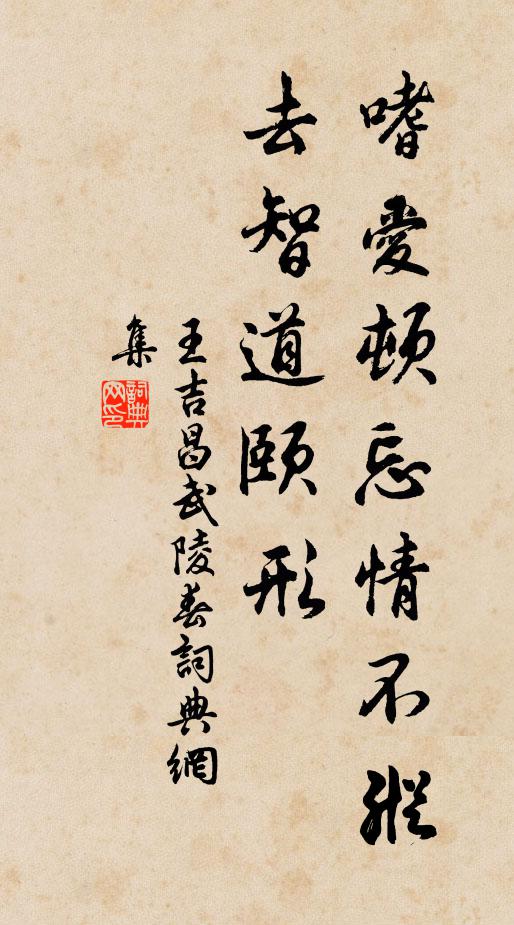 嗜愛頓忘情不縱
去智道頤形
王吉昌武陵春詞典網
集
詞典
网印